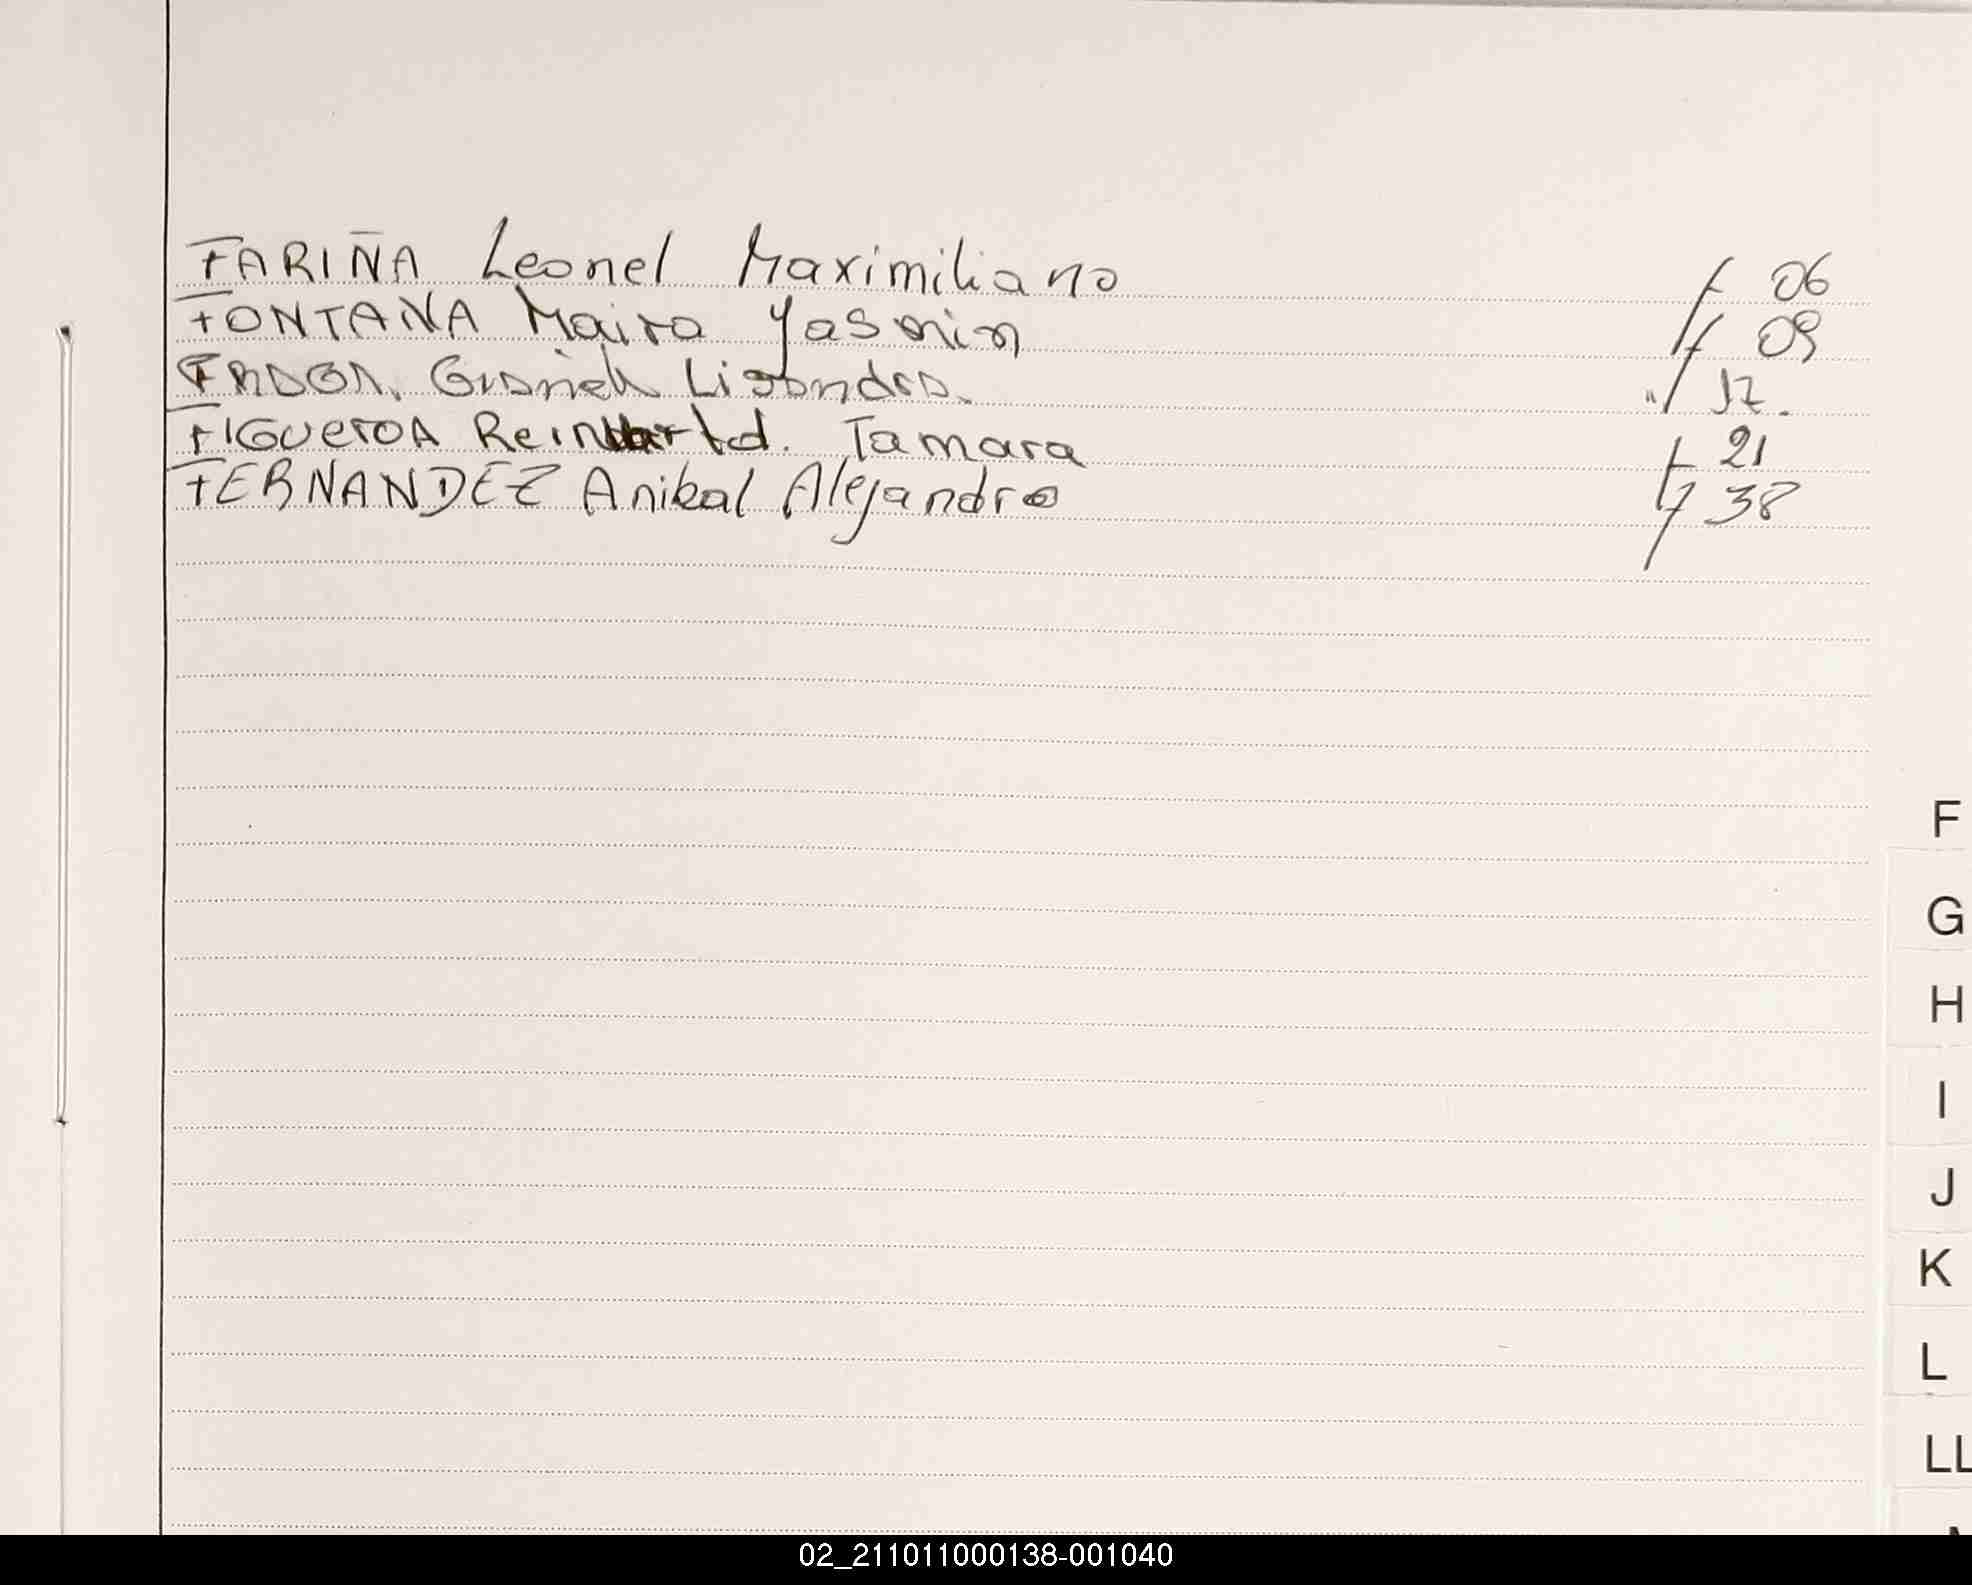 FARIÑA Leonel Maximiliano f 06
FONTANA Maira Yasmin f 09
Lisandro. " 17.
FIGUEROA Tamara f 21
FERNANDEZ Anibal Alejandro f 38
F
G
H
I
J
K
L
LL
02_211011000138-001040